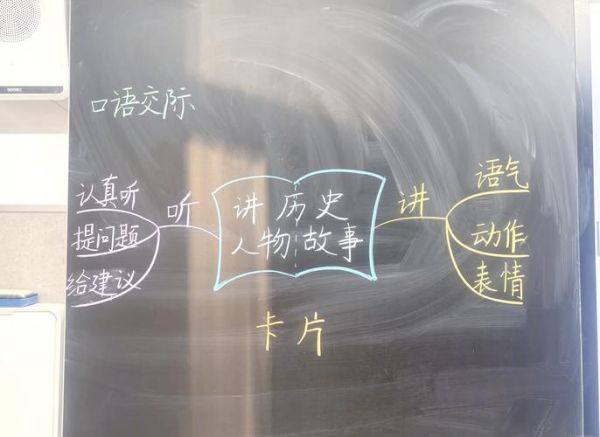 口语交际
认真听
提问题
给建议
听
讲历史
人物故事
讲
语气
动作
表情
卡片